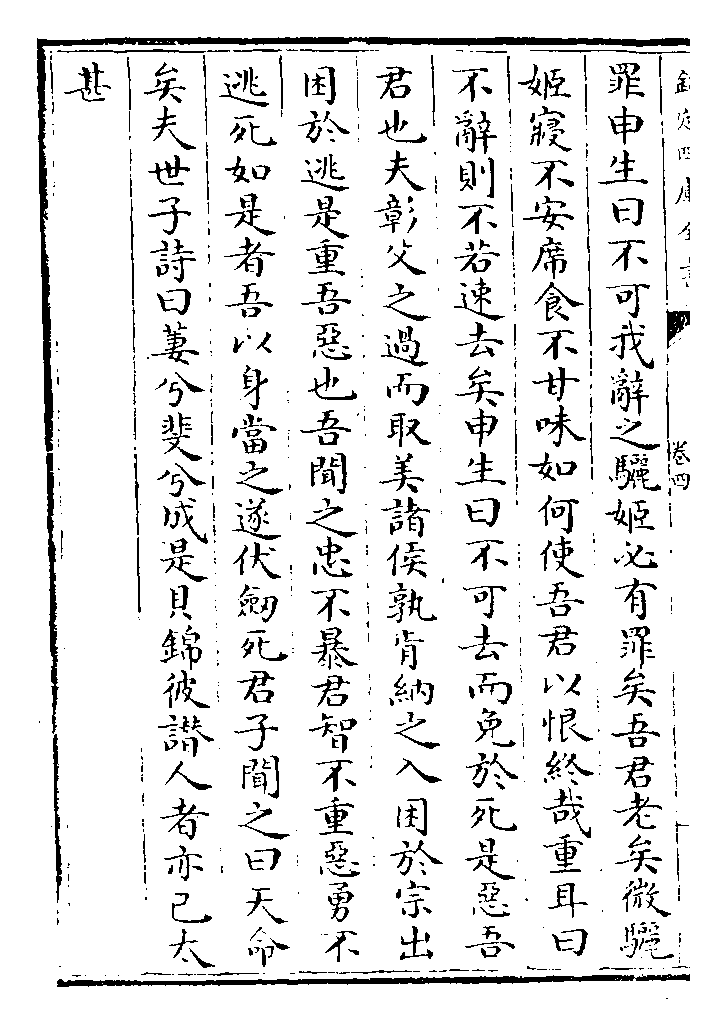 欽定四庫全書
卷四
罪申生曰不可我辭之驪姬必有罪矣吾君老矣微驪
姬寢不安席食不甘味如何使吾君以恨終哉重耳曰
不辭則不若速去矣申生曰不可去而免於死是惡吾
君也夫彰父之過而取美諸侯孰肯納之入困於宗出
困於逃是重吾惡也吾聞之忠不暴君智不重惡勇不
逃死如是者吾以身當之遂伏劒死君子聞之曰天命
矣夫世子詩曰萋兮斐兮成是貝錦彼譖人者亦已太
甚